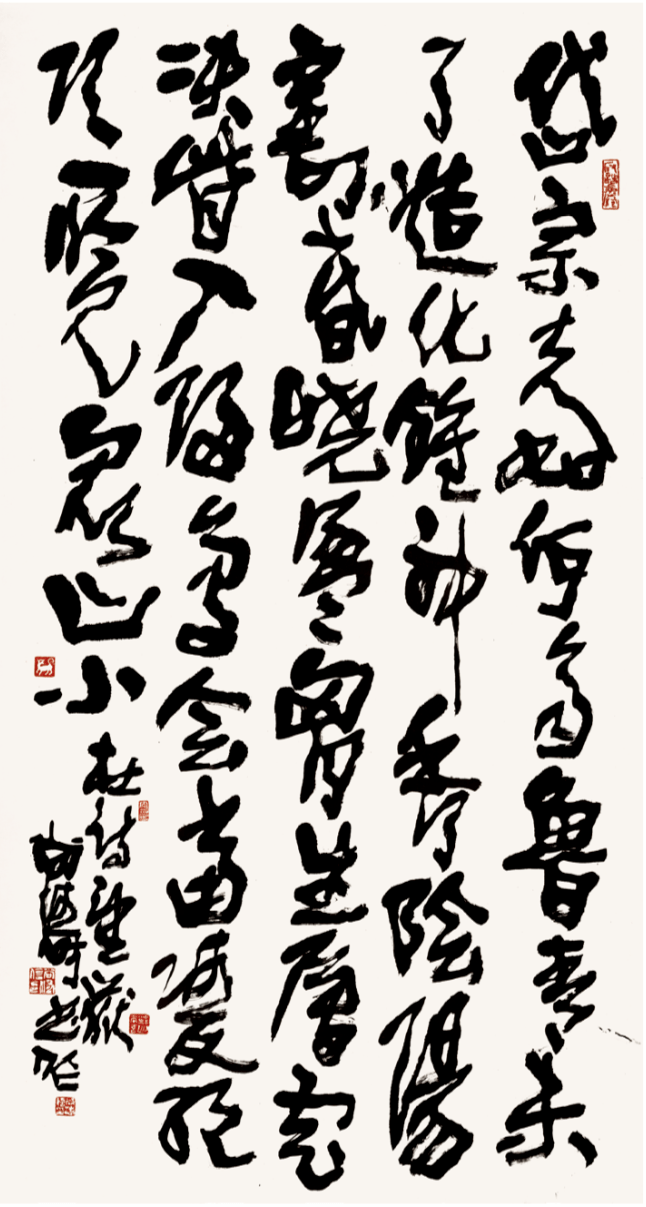 岱宗夫如何齊魯青未
了造化鍾神秀陰陽
割昏曉盪胸生層雲
決眥入歸鳥会當凌絕
頂一覽眾山小
杜詩望嶽